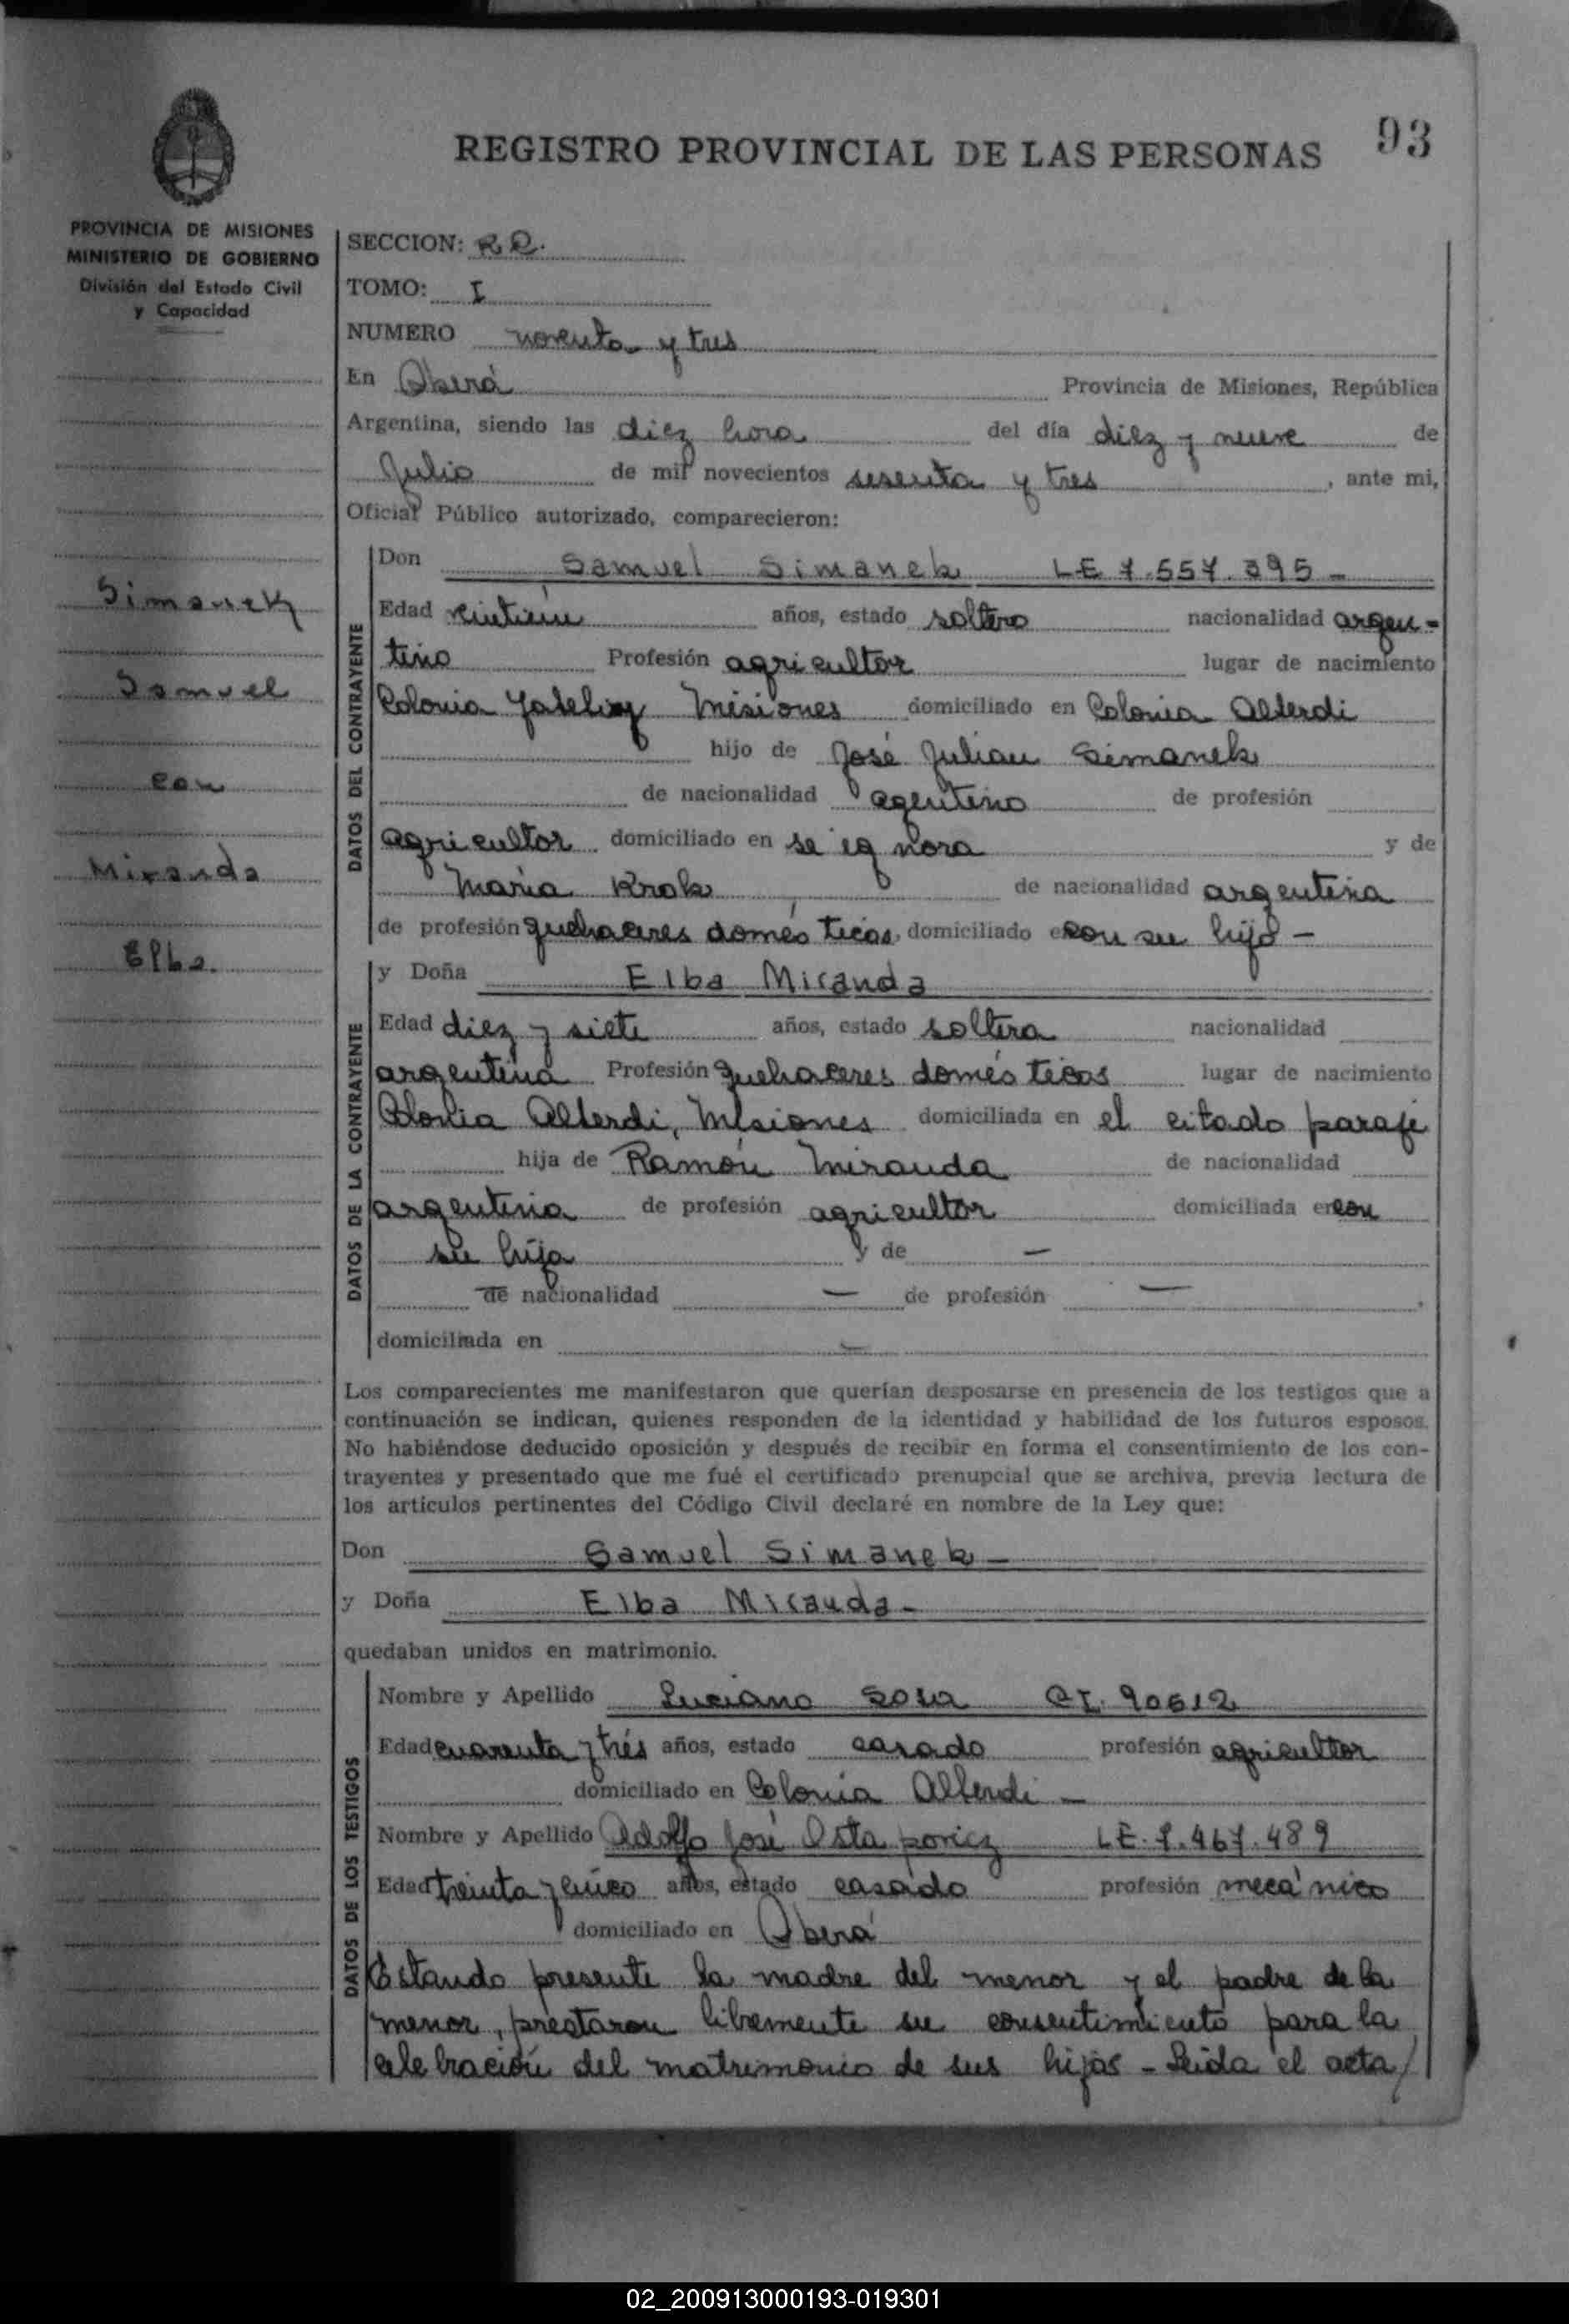 93
REGISTRO PROVINCIAL DE LAS PERSONAS
PROVINCIA DE MISIONES
MINISTERIO DE GOBIERNO
División del Estado Civil
y Capacidad
SECCION: R.R.
TOMO: I
NUMERO noventa y tres
En Oberá Provincia de Misiones, República
Argentina, siendo las diez hora del día diez y nueve de
Julio de mil novecientos sesenta y tres, ante mi,
Oficial Público autorizado, comparecieron:
Simanek
Samuel
con
Miranda
Elba.
DATOS DEL CONTRAYENTE
Don Samuel Simanek LE 7.557.395 -
Edad años, estado soltero nacionalidad argen-
tino Profesión agricultor lugar de nacimiento
Colonia Misiones domiciliado en Colonia Alberdi
hijo de José Julian Simanek
de nacionalidad agentino de profesión
agricultor domiciliado en se ignora y de
Maria Krok de nacionalidad argentina
de profesión quehaceres domésticos, domiciliado en con su hijo -
DATOS DE LA CONTRAYENTE
y Doña Elba Miranda
Edad diez y siete años, estado soltera nacionalidad
argentina Profesión quehaceres domésticos lugar de nacimiento
Colonia Alberdi, Misiones domiciliada en el citado paraje
hija de Ramón Miranda de nacionalidad
argentina de profesión agricultor domiciliada en con
su hija y de —
de nacionalidad — de profesión —,
domiciliada en —
Los comparecientes me manifestaron que querían desposarse en presencia de los testigos que a
continuación se indican, quienes responden de la identidad y habilidad de los futuros esposos.
No habiéndose deducido oposición y después de recibir en forma el consentimiento de los con-
trayentes y presentado que me fué el certificado prenupcial que se archiva, previa lectura de
los artículos pertinentes del Código Civil declaré en nombre de la Ley que:
Don Samuel Simanek -
y Doña Elba Miranda -
quedaban unidos en matrimonio.
DATOS DE LOS TESTIGOS
Nombre y Apellido Luciano Sosa CI. 90612
Edad cuarenta y trés años, estado casado profesión agricultor
domiciliado en Colonia Alberdi -
Nombre y Apellido Adolfo José Ostapovicz LE. 7.467.489
Edad treinta y cinco años, estado casado profesión mecánico
domiciliado en Oberá
Estando presente la madre del menor y el padre de la
menor, prestaron libremente su consentimiento para la
celebración del matrimonio de sus hijos - Leida el acta/
02_200913000193-019301